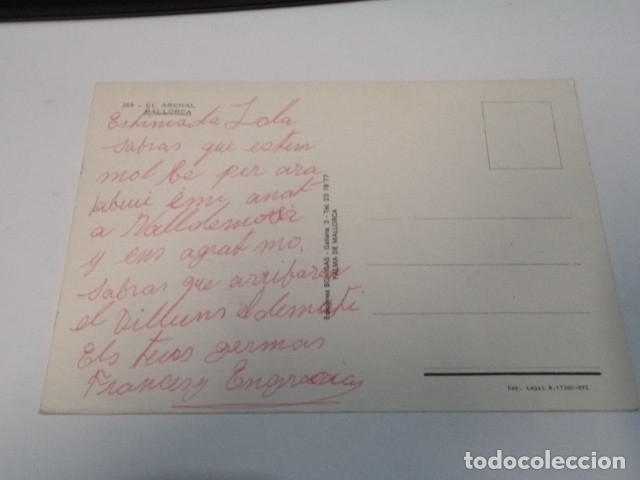 269 - EL ARENAL
MALLORCA
Estimada Lola
sabras que estem
mol be per ara
abui em anat
a Valldemosa
y ens agrat mo.
Sabras que arribarem
el Dilluns al demati
Els teus germas
Frances y Engracia
Ediciones BOHIGAS - Galiana, 3 - Tel. 23 78 77
PALMA DE MALLORCA
Dep. Legal B.
todocoleccion
todocoleccion.net